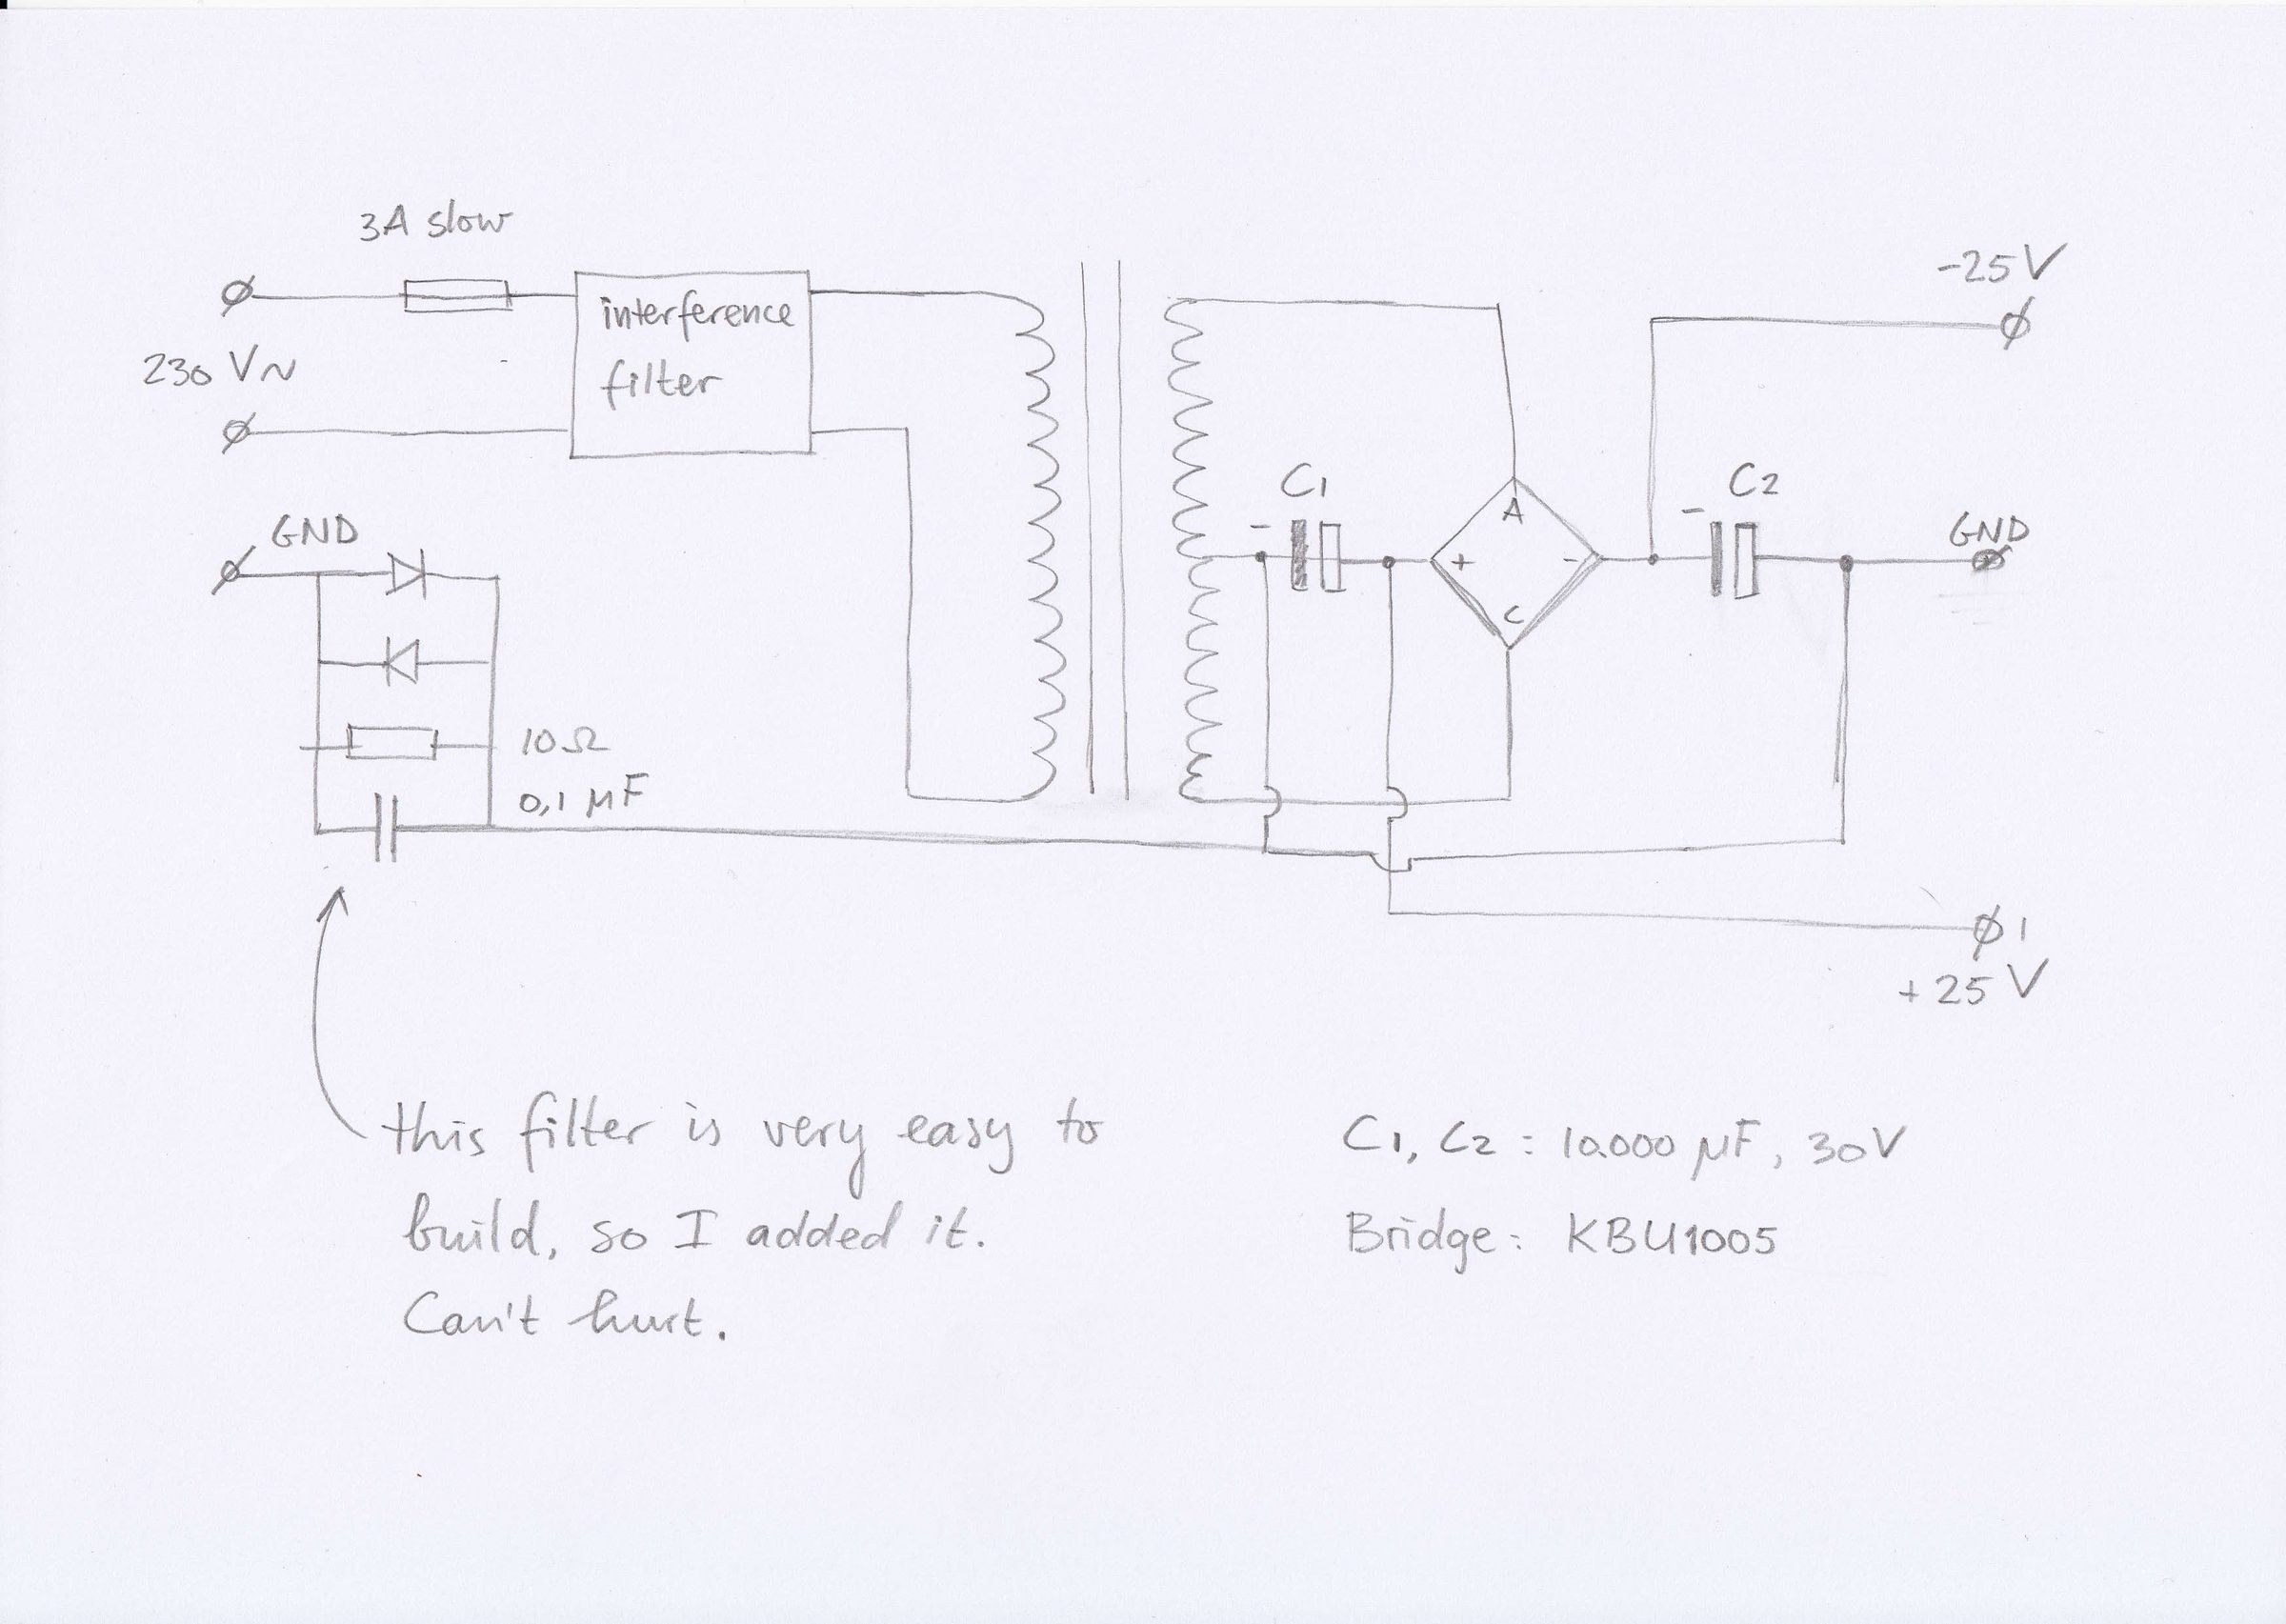 3A slow
-25V
interference
filter
230 V~
C1
C2
A
+
-
C
-
-
GND
GND
10Ω
0,1 μF
1
+25V
this filter is very easy to
build, so I added it.
Can't hurt.
C1, C2 : 10.000 μF, 30V
Bridge: KBU1005